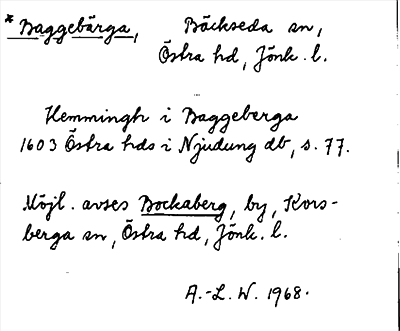 * Baggebärga, Bäckseda sn,
Östra hd, Jönk. l.
Hemmingh i Baggeberga
1603 Östra hds i Njudung db, s. 77.
Möjl. avses Bockaberg, by, Kors-
berga sn, Östra hd, Jönk. l.
A.-L. W. 1968.